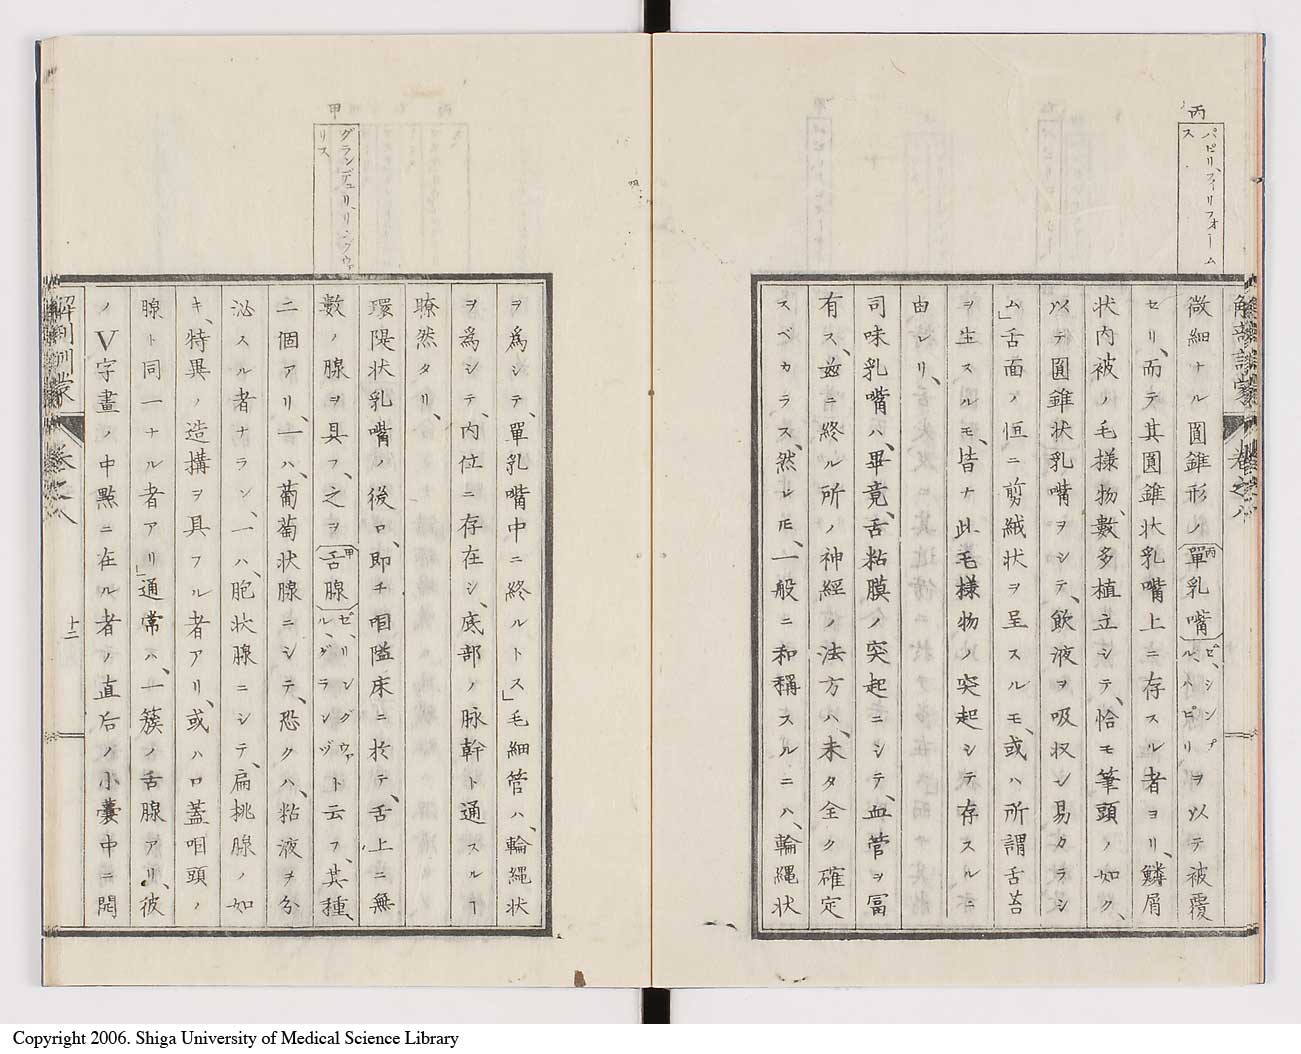 丙
パピリ、フィリフォーム
ス
解剖訓蒙
卷之八
微細ナル圓錐形ノ單乳嘴ゼ、シンプルピリヲ以テ被覆
セリ、而テ其圓錐状乳嘴上ニ存スル者ヨリ、鱗屑
状内被ノ毛様物、數多植立シテ、恰モ筆頭ノ如ク、
以テ圓錐状乳嘴ヲシテ、飲液ヲ吸収シ易カラシ
ム」舌面ノ恒ニ剪絨状ヲ呈スルモ、或ハ所謂舌苔
ヲ生スルモ、皆ナ此毛様物ノ突起シテ存スルニ
由レリ、
司味乳嘴ハ、畢竟、舌粘膜ノ突起ニシテ、血管ヲ冨
有ス、茲ニ終ル所ノ神經ノ法方ハ、未タ全ク確定
スベカラス、然レ𪜈、一般ニ和稱スルニハ、輪縄状
ヲ爲シテ、單乳嘴中ニ終ルトス」毛細管ハ、輪縄状
ヲ爲シテ、内位ニ存在シ、底部ノ脉幹ト通スルー
瞭然タリ、
環隄状乳嘴ノ後ロ、即チ咽隘床ニ於テ、舌上ニ無
數ノ腺ヲ具フ、之ヲ甲舌腺ゼ、リングウァル、グランヅト云フ、其種、
二個アリ、一ハ、葡萄状腺ニシテ、恐クハ、粘液ヲ分
泌スル者ナラン、一ハ、胞状腺ニシテ、扁桃腺ノ如
キ、特異ノ造構ヲ具フル者アリ、或ハ口蓋咽頭ノ
腺ト同一ナル者アリ」通常ハ、一簇ノ舌腺アリ、彼
ノV字畫ノ中點ニ在ル者ノ直后ノ小嚢中ニ開
甲
グランデュリ、リングウァ
リス
解剖訓蒙
卷之八
十二
Copyright 2006. Shiga University of Medical Science Library